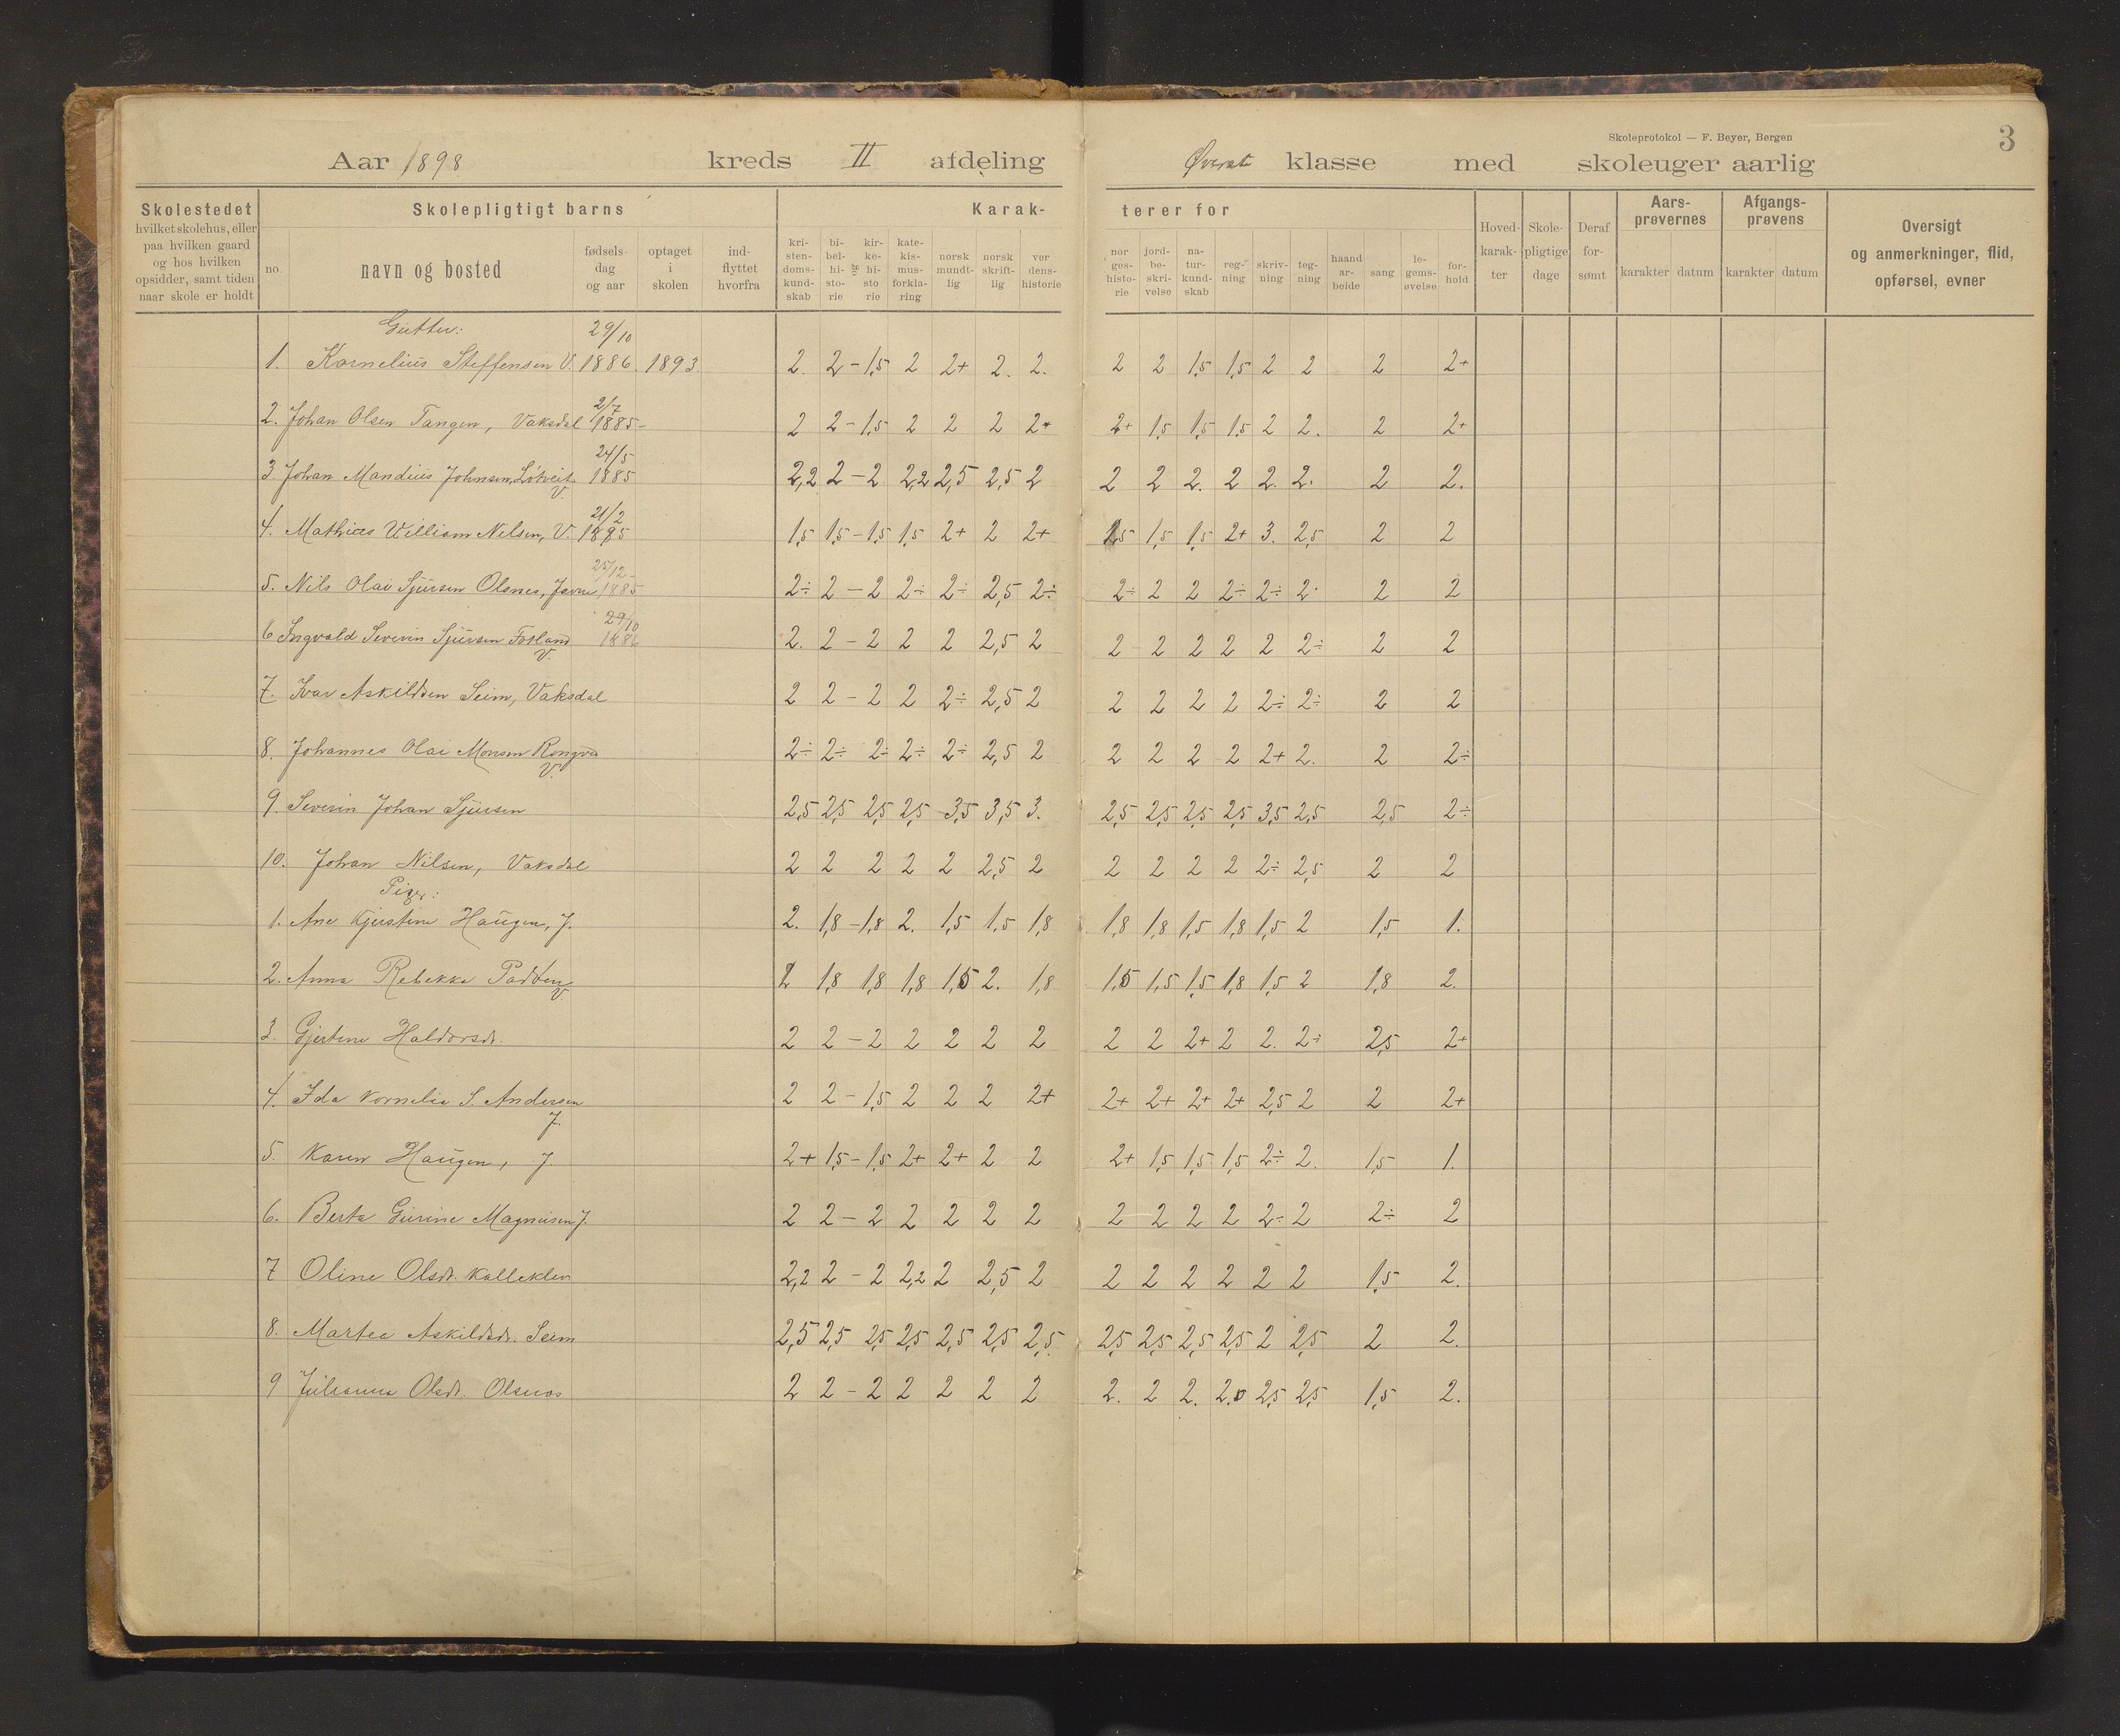 Skoleprotokol — F. Beyer, Bergen
3
Aar 1898 kreds II afdeling Øverste klasse med skoleuger aarlig
Skolestedet
hvilket skolehus, eller
paa hvilken gaard
og hos hvilken
opsidder, samt tiden
naar skole er holdt
Skolepligtigt barns
no.
navn og bosted
fødsels-
dag
og aar
optaget
i
skolen
ind-
flyttet
hvorfra
Karak-
kri-
sten-
doms-
kund-
skab
bi-
bel-
hi-
sto-
rie
kir-
ke-
hi-
sto
rie
kate-
kis-
mus-
forkla-
ring
norsk
mundt-
lig
norsk
skrift-
lig
ver
dens-
historie
terer for
nor
ges-
histo-
rie
jord-
be-
skri-
velse
na-
tur-
kund-
skab
reg-
ning
skriv-
ning
teg-
ning
haand
ar-
beide
sang
le-
gems-
øvelse
for-
hold
Hoved-
karak-
ter
Skole-
pligtige
dage
Deraf
for-
sømt
Aars-
prøvernes
karakter datum
Afgangs-
prøvens
karakter datum
Oversigt
og anmerkninger, flid,
opførsel, evner
Gutter: 29/10
1. Kornelius Steffensen V. 1886 1893. 2. 2 - 1,5 2 2+ 2. 2. 2 2 1,5 1,5 2 2 2 2+
2/7
2. Johan Olsen Tangen, Vaksdal 1885- 2 2 - 1,5 2 2 2 2+ 2+ 1,5 1,5 1,5 2 2. 2 2+
24/5
3. Johan Mandius Johnsen, 1885 2,2 2 - 2 2,2 2,5 2,5 2 2 2 2. 2 2. 2. 2 2.
V.
21/2
4. Mathias William Nilsen, V. 1885 1,5 1,5 - 1,5 1,5 2+ 2 2+ 2,5 1,5 1,5 2+ 3. 2,5 2 2
25/12-
5. Nils Olai Sjursen Olsnes, 1885 2÷ 2 - 2 2÷ 2÷ 2,5 2÷ 2÷ 2 2 2÷ 2÷ 2. 2 2
29/10
6 Ingvald Severin Sjursen Fosland 1886 2. 2 - 2 2 2 2,5 2 2 2 2 2 2 2÷ 2 2
V.
7. Ivar Askildsen Seim, Vaksdal 2 2 - 2 2 2÷ 2,5 2 2 2 2 2 2÷ 2÷ 2 2
8. Johannes Olai Monsen 2÷ 2÷ 2÷ 2÷ 2÷ 2,5 2 2 2 2 2 2+ 2. 2 2÷
V.
9. Severin Johan Sjursen 2,5 2,5 2,5 2,5 3,5 3,5 3. 2,5 2,5 2,5 2,5 3,5 2,5 2,5 2÷
10. Johan Nilsen, Vaksdal 2 2 2 2 2 2,5 2 2 2 2 2 2÷ 2,5 2 2
Piger:
1. Ane Kjerstine Haugen, J. 2. 1,8 - 1,8 2. 1,5 1,5 1,8 1,8 1,8 1,5 1,8 1,5 2 1,5 1.
2. Anna Rebekka 2 1,8 1,8 1,8 1,5 2. 1,8 1,5 1,5 1,5 1,8 1,5 2 1,8 2.
V.
3. Gjertine Haldorsdr. 2 2 - 2 2 2 2 2 2 2 2+ 2 2. 2÷ 2,5 2+
4. Ida Kornelia S. Andersen 2 2 - 1,5 2 2 2 2+ 2+ 2+ 2+ 2+ 2,5 2 2 2+
J.
5. Karen Haugen, J. 2+ 1,5 - 1,5 2+ 2+ 2 2 2+ 1,5 1,5 1,5 2÷ 2. 1,5 1.
6. Berta Gurine Magnusen J. 2 2 - 2 2 2 2 2 2 2 2 2 2÷ 2 2÷ 2
7 Oline Olsdr. Kalleklev 2,2 2 - 2 2,2 2 2,5 2 2 2 2 2 2 2 1,5 2.
8. Martea Askildsdr. Seim 2,5 2,5 2,5 2,5 2,5 2,5 2,5 2,5 2,5 2,5 2,5 2 2,5 2 2.
9 Julianna Olsdr. Olsnes 2 2 - 2 2 2 2 2 2. 2 2. 2.0 2,5 2,5 1,5 2.